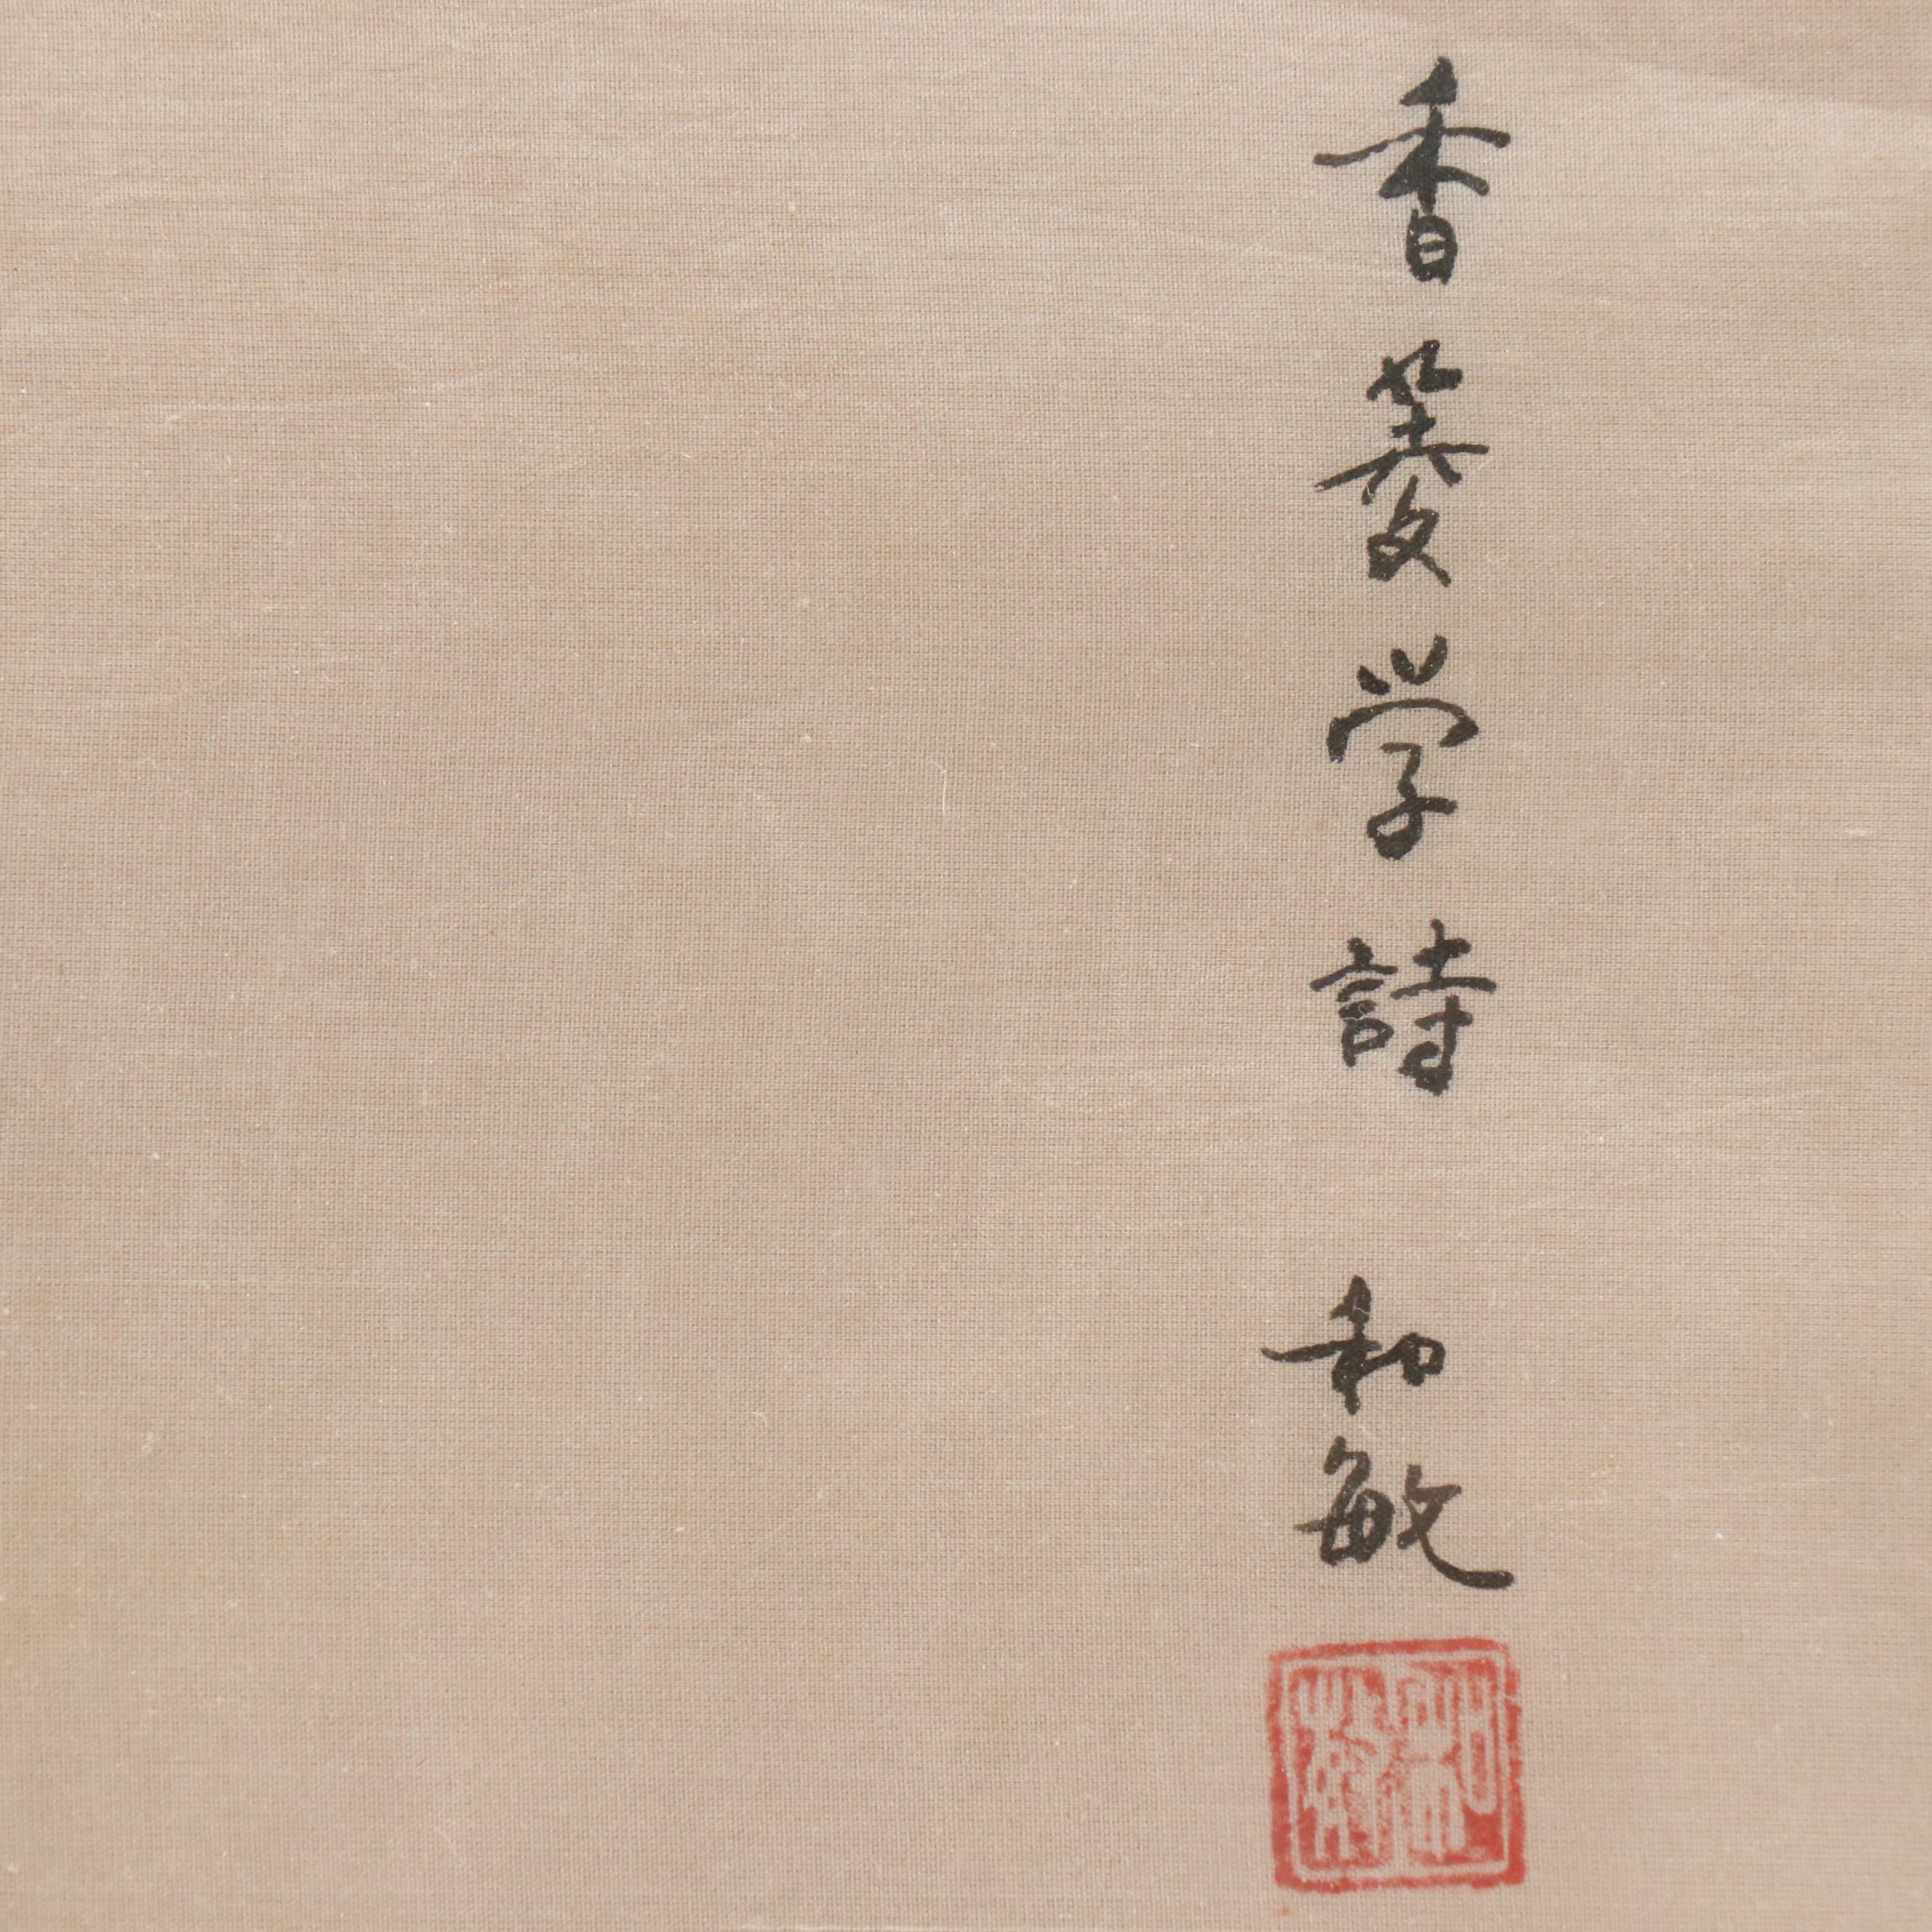 香菱学詩 和敏